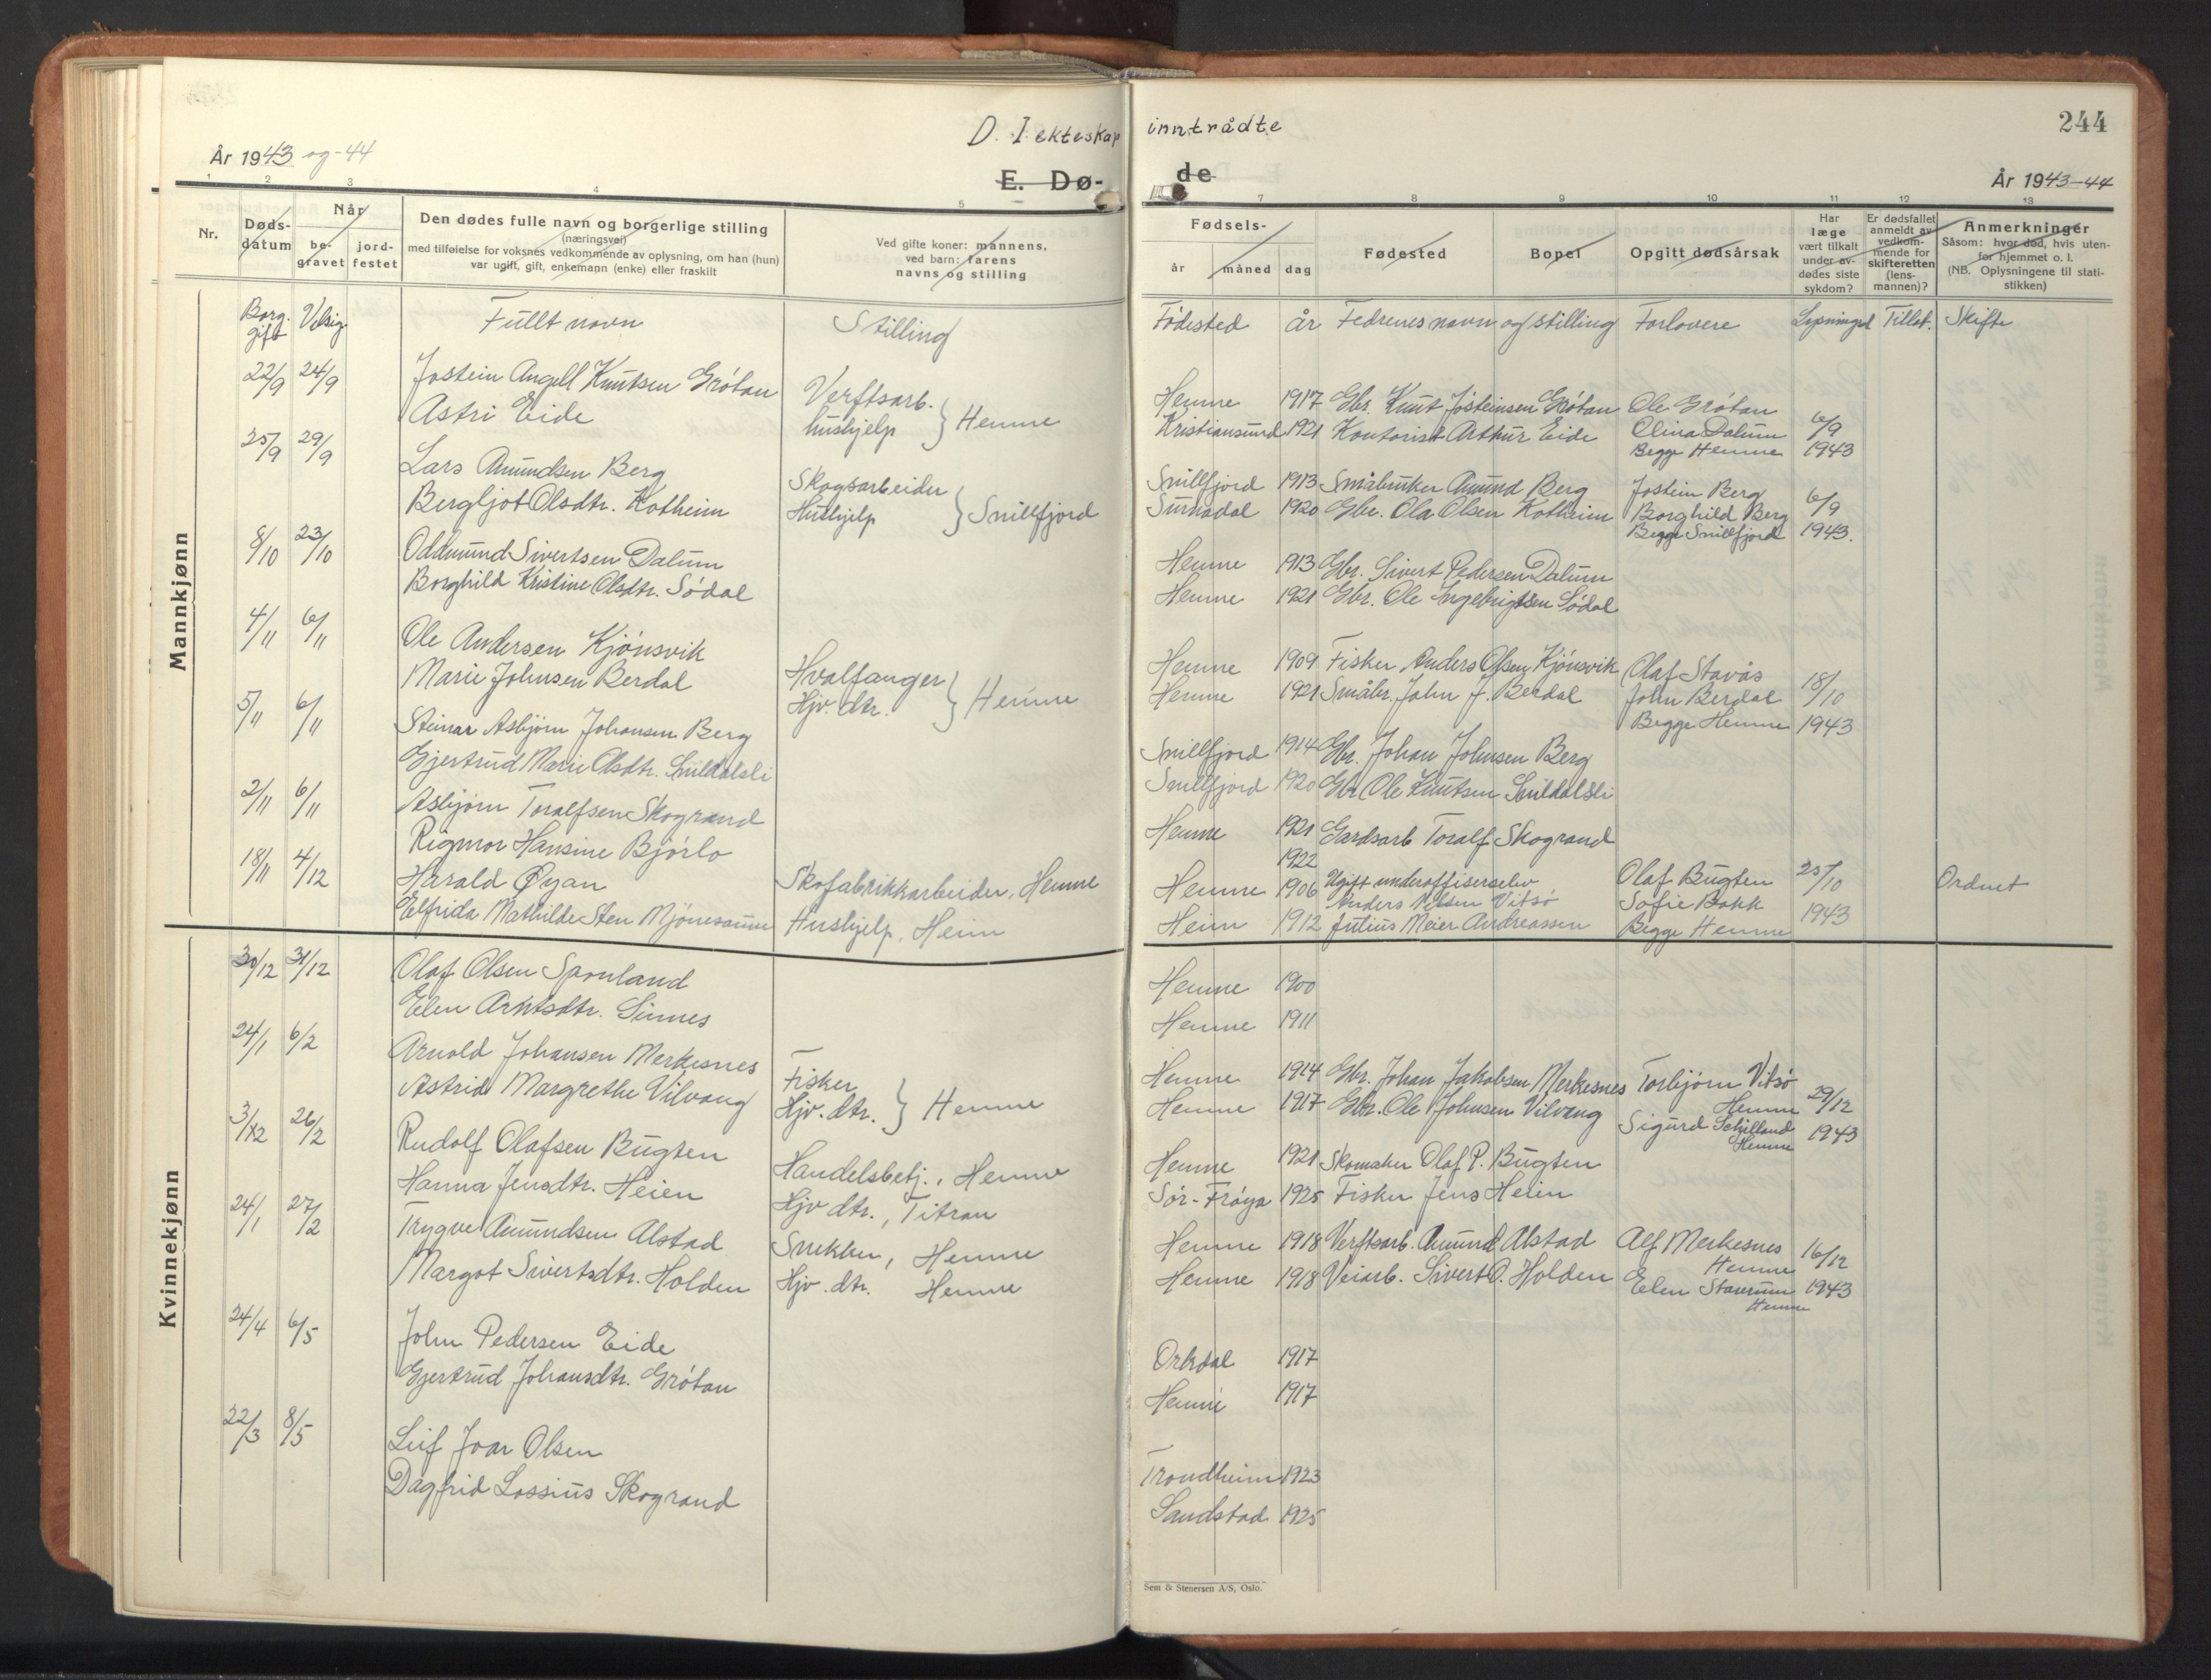 244
D. I ekteskap inntrådte
År 1943 og -44
E. Dø- de
År 1943-44
1 2 3 4 5 7 8 9 10 11 12 13
Nr.
Døds-datum
Når
be-gravet
jord-festet
Den dødes fulle navn og borgerlige stilling
(næringsvei)
med tilføielse for voksnes vedkommende av oplysning, om han (hun)
var ugift, gift, enkemann (enke) eller fraskilt
Ved gifte koner: mannens,
ved barn: farens
navns og stilling
Fødsels-
år måned dag
Fødested
Bopel
Opgitt dødsårsak
Har læge vært tilkalt under av-dødes siste sykdom?
Er dødsfallet anmeldt av vedkom-mende for skifteretten (lens-mannen)?
Anmerkninger
Såsom: hvor død, hvis uten-
for hjemmet o. l.
(NB. Oplysningene til stati-
stikken)
Borg. gift Velsig. Fullt navn Stilling Fødested år Fedrenes navn og stilling Forlovere Lysningsd Tillat. Skifte
Mannkjønn
22/9 24/9 Jostein Angell Knutsen Grötan Verftsarb. Hemne 1917 Gbr. Knut Jösteinsen Grötan Ole Grötan
Astri Eide hushjelp } Hemne Kristiansund 1921 Kontorist Arthur Eide Olina Dalum 6/9
Begge Hemne 1943
25/9 29/9 Lars Amundsen Berg Skogsarbeider Snillfjord 1913 Småbruker Amund Berg Jostein Berg 6/9
Bergljot Olsdtr. Kotheim Hushjelp } Snillfjord Surnadal 1920 Gbr. Ola Olsen Kotheim Borghild Berg
Begge Snillfjord 1943.
8/10 23/10 Oddmund Sivertsen Dalum Hemne 1913 Gbr. Sivert Pedersen Dalum
Borghild Kristine Olsdtr. Södal Hemne 1921 Gbr. Ole Ingebrigtsen Södal
4/11 6/11 Ole Andersen Kjönsvik Hvalfanger Hemne 1909 Fisker Anders Olsen Kjönsvik Olaf Stavås 18/10
Marie Johnsen Berdal Hjv. dtr. } Hemne Hemne 1921 Småbr. John J. Berdal John Berdal
Begge Hemne 1943
5/11 6/11 Steinar Asbjörn Johansen Berg Snillfjord 1914 Gbr. Johan Johnsen Berg
Gjertrud Marie Olsdtr. Snildalsli Snillfjord 1920 Gbr Ole Knutsen Snildalsli
2/11 6/11 Asbjörn Toralfsen Skogrand Hemne 1921 Gardsarb Toralf Skogrand
Rigmor Hansine Björlo 1922
18/11 4/12 Harald Öyan Skofabrikkarbeider, Hemne Hemne 1906 Ugift underoffiserselev Anders Nilsen Vitsö Olaf Bugten 25/10 Ordnet
Elfrida Mathilde Sten Mjönesaune Hushjelp, Heim Heim 1912 Julius Meier Andreassen Sofie Bakk 1943
Begge Hemne
Kvinnekjønn
30/12 31/12 Olaf Olsen Sponland Hemne 1900
Elen Arntsdtr. Sinnes Hemne 1911
24/1 6/2 Arnold Johansen Merkesnes Fisker Hemne 1914 Gbr. Johan Jakobsen Merkesnes Torbjörn Vitsö
Astrid Margrethe Vilvang Hjv. dtr. } Hemne Hemne 1917 Gbr. Ole Johnsen Vilvang Hemne 29/12
Sigurd Hemne 1943
3/12 26/2 Rudolf Olafsen Bugten Handelsbetj., Hemne Hemne 1921 Skomaker Olaf P. Bugten
Hanna Jensdtr. Heien Hjv dtr., Titran Sör-Fröya 1925 Fisker Jens Heien
24/1 27/2 Trygve Amundsen Alstad Snekker, Hemne Hemne 1918 Verftsarb. Amund Alstad Alf Merkesnes 16/12
Margot Sivertsdtr. Holden Hjv. dtr. Hemne Hemne 1918 Veiarb. Sivert O. Holden Hemne
Elen Staurum 1943
Hemne
24/4 6/5 John Pedersen Eide Orkdal 1917
Gjertrud Johansdtr. Grötan Hemne 1917
22/3 8/5 Leif Joar Olsen Trondheim 1923
Dagfrid Lossius Skogrand Sandstad 1925
Sem & Stenersen A/S, Oslo.